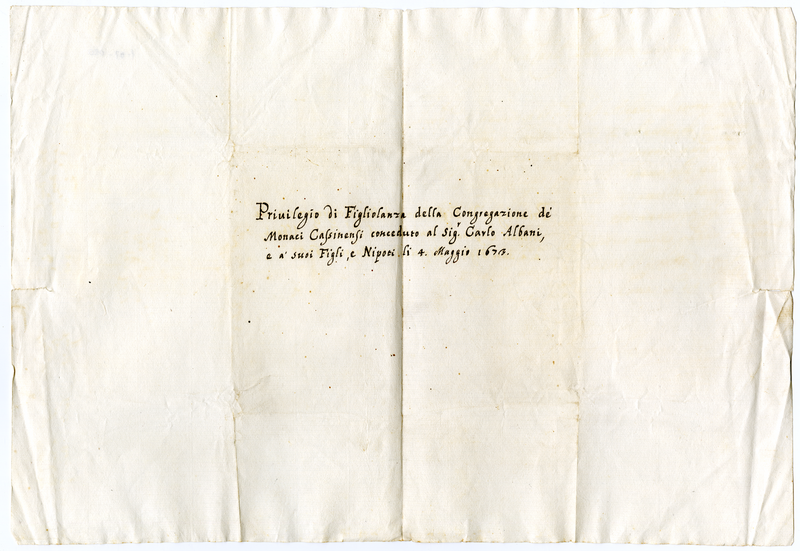 Priuilegio di Figliolanza della Congregazione de'
Monaci Cassinensi conceduto al Sigr. Carlo Albani,
e a' suoi Figli, e Nipoti li 4. Maggio 1673.